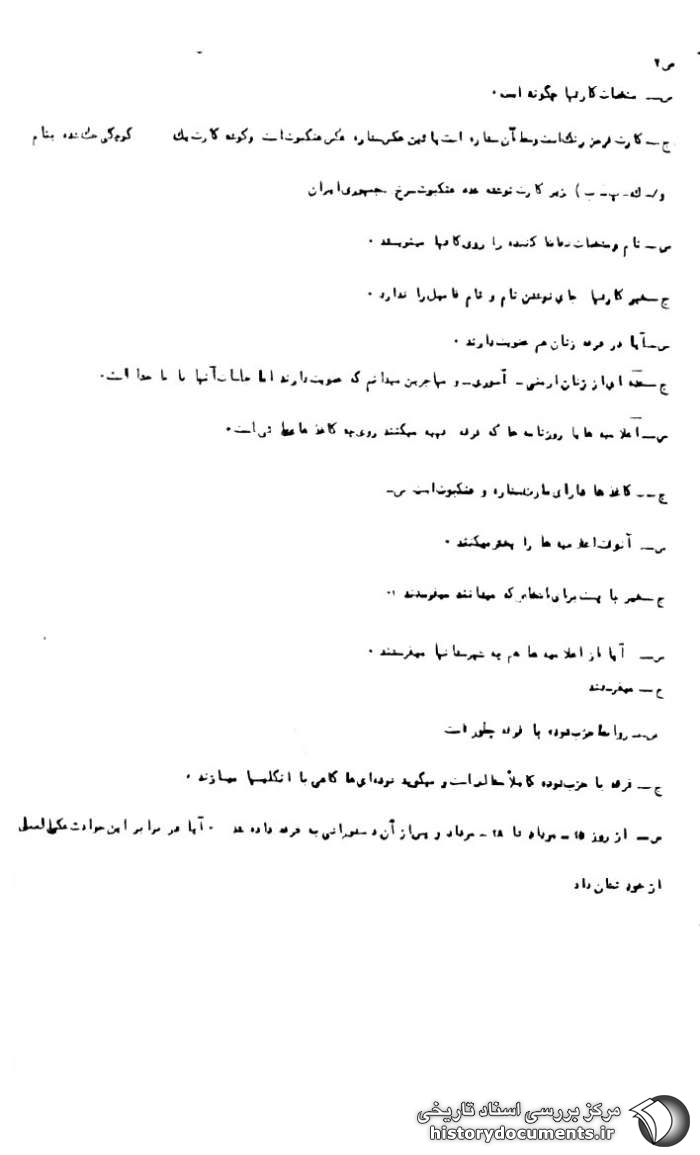 ص ۲
س ـ مشخصات کارتها چگونه است ۰
ج ـ کارت قرمز رنگ است وسط آن ستاره است پائین عکس ستاره عکس عنکبوت است وگوشه کارت یک کوچکی بنام
و ـ ک ـ پ ـ ب ) زیر کارت نوشته شده عنکبوت سرخ جمهوری ایران
س ـ نام ومشخصات تقاضا کننده را روی کارتها مینویسند ۰
ج ـ خیر کارتها جای نوشتن نام و نام فامیل را ندارد ۰
س ـ آیا در فرقه زنان هم عضویت دارند ۰
ج ـ عده ای از زنان ارمنی ـ آسوری ـ و مهاجرین میدانم که عضویت دارند اما جلسات آنها با ما جدا است ۰
س ـ اعلامیه ها یا روزنامه ها که فرقه تهیه میکنند روی چه کاغذ هائی است ۰
ج ـ ـ کاغذ ها دارای مارک ستاره و عنکبوت است س ـ
س ـ آنوقت اعلامیه ها را پخش میکنند ۰
ج ـ خیر با پست برای اشخاص که میدانند میفرستند ۰
س ـ آیا از اعلامیه ها هم به شهرستانها میفرستند ۰
ج ـ میفرستند
س ـ روابط حزب توده با فرقه چطور است
ج ـ فرقه با حزب توده کاملاً مخالف است و میگوید توده ای ها گاهی با انگلیسها میسازند ۰
س ـ از روز ۲۵ ـ مرداد تا ۲۸ ـ مرداد و پس از آن دستوراتی به فرقه داده شد ۰ آیا در برابر این حوادث عکس العملی
از خود نشان داد
مرکز بررسی اسناد تاریخی
historydocuments.ir